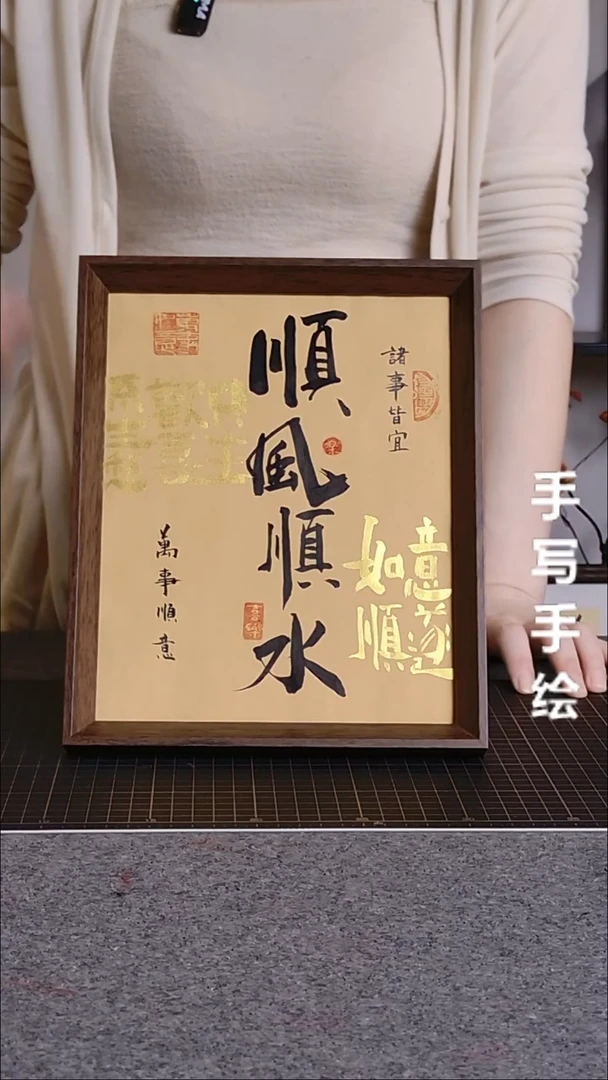 諸事皆宜
順風順水
如意
順遂
萬事順意
手写手绘